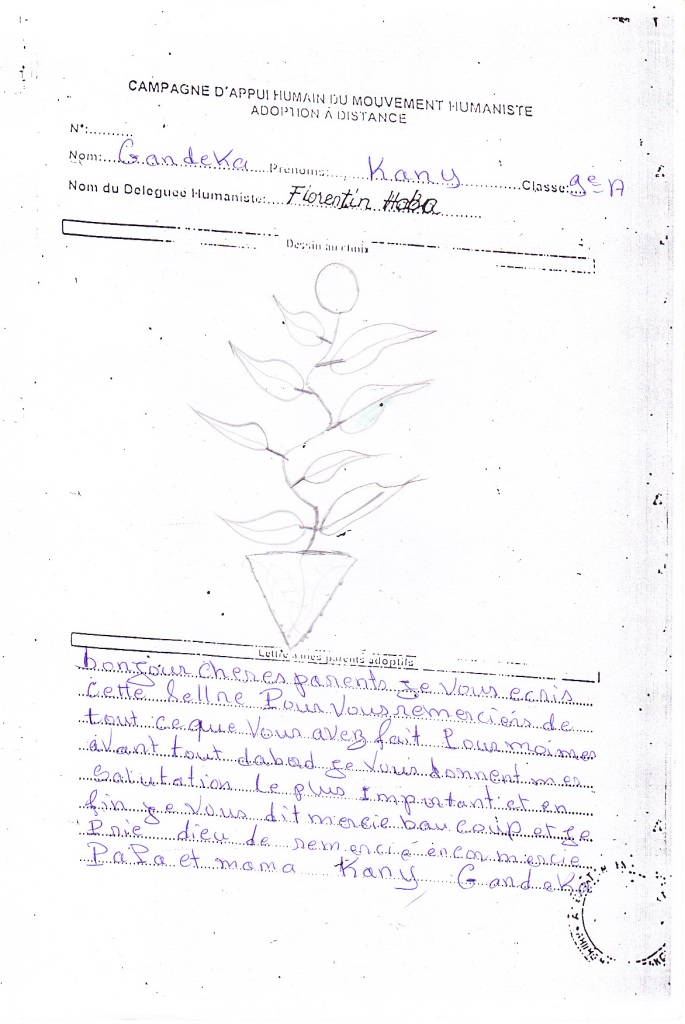 CAMPAGNE D'APPUI HUMAIN DU MOUVEMENT HUMANISTE
ADOPTION À DISTANCE
N°:..........
Nom:...Gandeka...Prénoms:...Kany...Classe:...9e A
Nom du Deleguée Humaniste:...Florentin Haba...
Dessin au choix
Lettre à mes parents adoptifs
bonjour cheres parents je vous ecris
cette lellre Pour vous remerciers de
tout ce que vous avez fait Pour moi mes
avant tout dabad je vous donnent mes
salutation le plus Important et en
fin je vous dit mercie bau coup et je
Prie dieu de remercié encor mercie
PaPa et mama Kany Gandeka